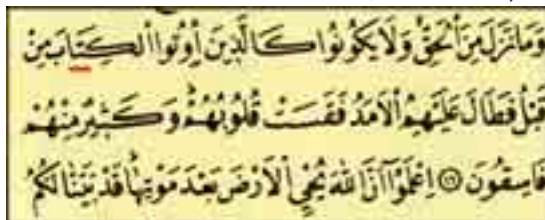 وَمَانَزَلَ مِنَ الْحَقِّ وَلَا يَكُونُوا كَالَّذِينَ أُوتُوا الْكِتَابَ مِنْ
قَبْلُ فَطَالَ عَلَيْهِمُ الْأَمَدُ فَقَسَتْ قُلُوبُهُمْ وَكَثِيرٌ مِنْهُمْ
فَاسِقُونَ ۝١٦ اِعْلَمُوا أَنَّ اللَّهَ يُحْيِي الْأَرْضَ بَعْدَ مَوْتِهَا قَدْ بَيَّنَّا لَكُمُ